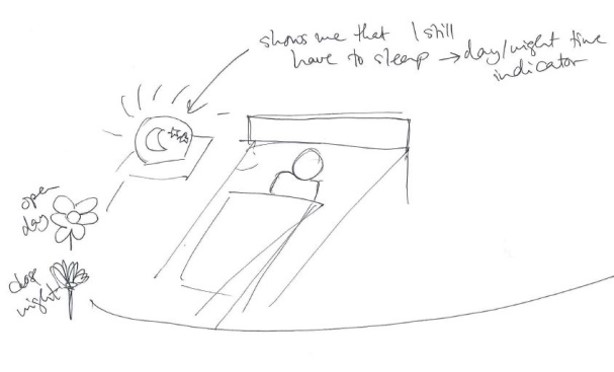 shows me that I still
have to sleep → day/night time
indicator
open
day
close
night